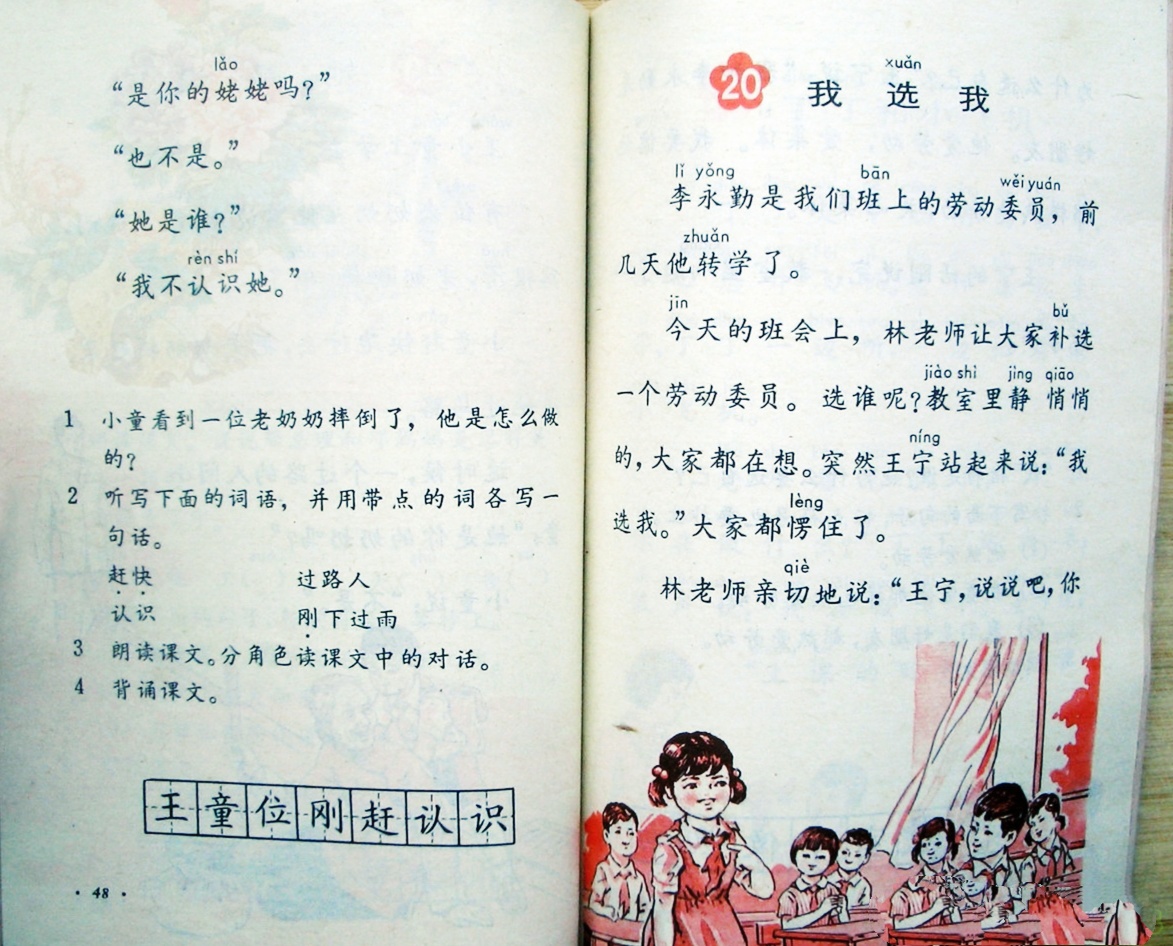 lǎo
“是你的姥姥吗？”
“也不是。”
“她是谁？”
rèn shí
“我不认识她。”
1 小童看到一位老奶奶摔倒了，他是怎么做
的？
2 听写下面的词语，并用带点的词各写一
句话。
赶快 过路人
认识 刚下过雨
3 朗读课文。分角色读课文中的对话。
4 背诵课文。
王童位刚赶认识
· 48 ·
xuǎn
20 我选我
lǐ yǒng bān wěi yuán
李永勤是我们班上的劳动委员，前
zhuǎn
几天他转学了。
jīn bǔ
今天的班会上，林老师让大家补选
jiào shì jìng qiāo
一个劳动委员。选谁呢？教室里静悄悄
níng
的，大家都在想。突然王宁站起来说：“我
lèng
选我。”大家都愣住了。
qiè
林老师亲切地说：“王宁，说说吧，你